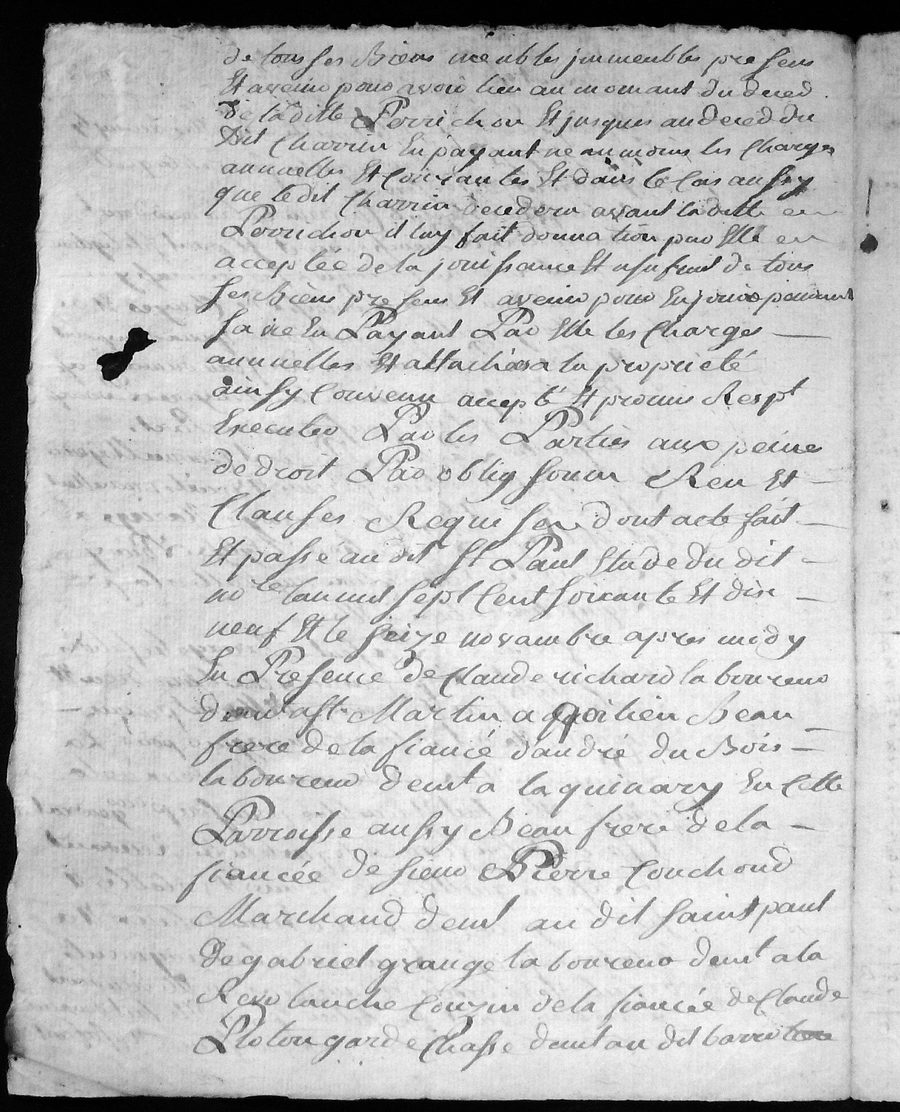 de tous ses Biens meubles immeubles presens
Et avenir pour avoir lieu au momant du deced
de la ditte Perrichon Et jusques au deced du
dit Charrin En payant neanmoins les Charges
annuelles Et Courantes Et dans le Cas aussy
que le dit Charrin decedera avant la ditte
Perrichon il luy fait donnation par Elle
acceptée de la jouissance Et usufruit de tous
ses Biens presens Et avenir pour En jouir pandant
sa vie En Payant Par Elle les Charges
annuelles Et attachées a la proprieté
ainsy Convenu accepté Et promis Respt
Executer Par les Parties aux peine
de droit Par oblig soum Ren Et
Clauses Requises dont acte fait
Et passe au dit St Paul Etude du dit
nore lan mil sept Cent soixante Et dix
neuf Et le seize novambre apres midy
En Presence de Claude richard laboureur
demt a St Martin a Beau
frere de la fiancé dandré du Bois
laboureur demt a la quinary En Cette
Parroisse aussy Beau frere de la
fiancée de sieur Pierre Couchoud
Marchand demt au dit saint paul
de gabriel grange laboureur demt a la
Couzin de la fiancée de Claude
Ploton garde Chasse demt au dit